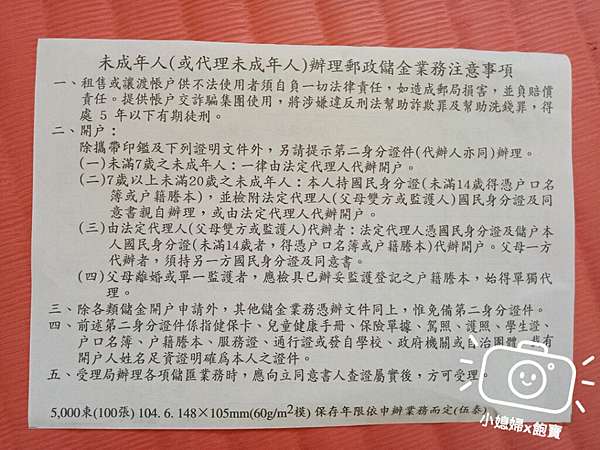 未成年人(或代理未成年人)辦理郵政儲金業務注意事項
一、租售或讓渡帳户供不法使用者須自負一切法律責任，如造成郵局損害，並負賠償
責任。提供帳户交詐騙集團使用，將涉嫌違反刑法幫助詐欺罪及幫助洗錢罪，得
處 5 年以下有期徒刑。
二、開户：
除攜帶印鑑及下列證明文件外，另請提示第二身分證件(代辦人亦同)辦理。
(一)未滿7歲之未成年人：一律由法定代理人代辦開户。
(二)7歲以上未滿20歲之未成年人：本人持國民身分證(未滿14歲得憑户口名
簿或户籍謄本)，並檢附法定代理人(父母雙方或監護人)國民身分證及同
意書親自辦理，或由法定代理人代辦開户。
(三)由法定代理人(父母雙方或監護人)代辦者：法定代理人憑國民身分證及儲户本
人國民身分證(未滿14歲者，得憑户口名簿或户籍謄本)代辦開户。父母一方
代辦者，須持另一方國民身分證及同意書。
(四)父母離婚或單一監護者，應檢具已辦妥監護登記之户籍謄本，始得單獨代
理。
三、除各類儲金開户申請外，其他儲金業務憑辦文件同上，惟免備第二身分證件。
四、前述第二身分證件係指健保卡、兒童健康手冊、保險單據、駕照、護照、學生證、
户口名簿、户籍謄本、服務證、通行證或發自學校、政府機關或自治團體，載有
開户人姓名足資證明確爲本人之證件。
五、受理局辦理各項儲匯業務時，應向立同意書人查證屬實後，方可受理。
5,000束(100張) 104. 6. 148×105mm(60g/m²模) 保存年限依申辦業務而定(伍泰)
小媳婦x飽寶